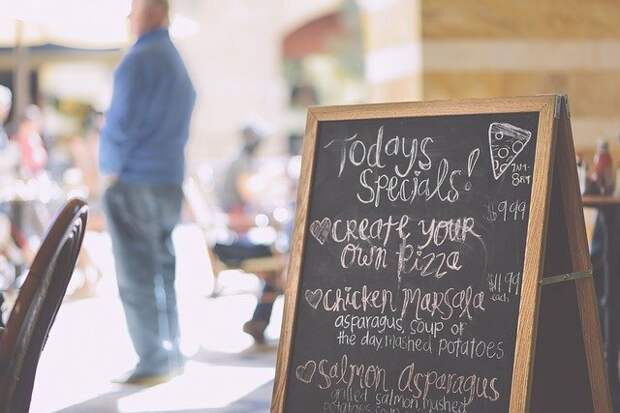 Todays
Specials!
$9.99
Create Your
Own Pizza
$11.99
each
Chicken Marsala
asparagus, soup of
the day, mashed potatoes
Salmon Asparagus
grilled salmon mushed
potatoes